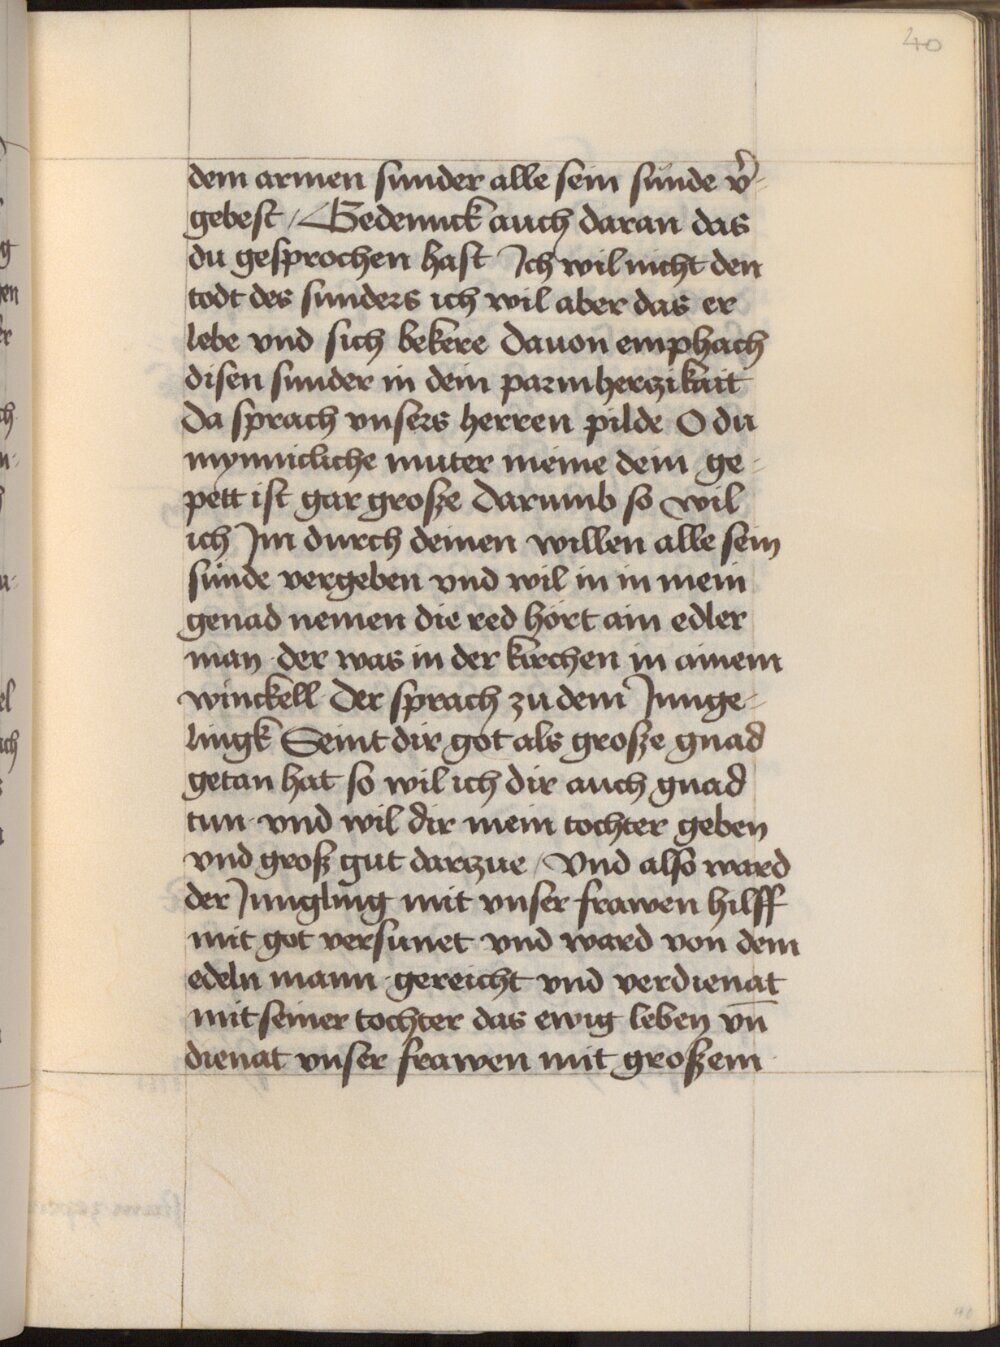 40
dem armen sunder alle sein sünde v̄-
gebest / Gedennck auch daran das
du gesprochen hast Ich wil nicht den
todt des sunders ich wil aber das er
lebe vnd sich bekere Dauon emphach
disen sunder in dein parmherczikait
Da sprach vnsers herren pilde O du
mynnicliche muter meine dein ge-
pett ist gar große Darumb so wil
ich Im durch deinen willen alle sein
sünde vergeben vnd wil in in mein
genad nemen die red hört ain edler
man der was in der kirchen in ainem
winckell Der sprach zu dem Junge-
lingk Seint dir got als große gnad
getan hat so wil ich dir auch gnad
tun vnd wil dir mein tochter geben
vnd groß gut darzue / Vnd also ward
der Jungling mit vnser frawen hilff
mit got versunet vnd ward von dem
edeln mann gereicht vnd verdienat
mit seiner tochter das ewig leben vn̄
dienat vnser frawen mit großem
40